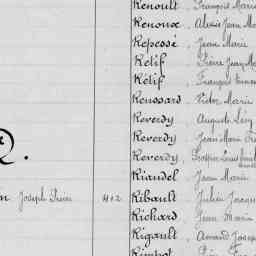 Renoult, François Marie
Renoux, Alexis Jean
Repessé, Jean Marie
Rétif, Pierre Jean
Rétif, François
Reussard, Victor Marie
Reverdy, Auguste
Reverdy, Jean M
Reverdy,
Q.
Riandel, Jean Marie
in Joseph Pierre 412 Ribault, Julien
Richard, Jean Marie
Rigault, Armand Joseph
Rimbot,